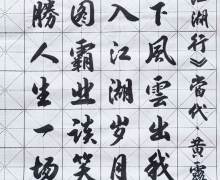 江湖行》當代·黄霑
下風雲出我
入江湖岁月
图霸业谈笑
勝人生一场